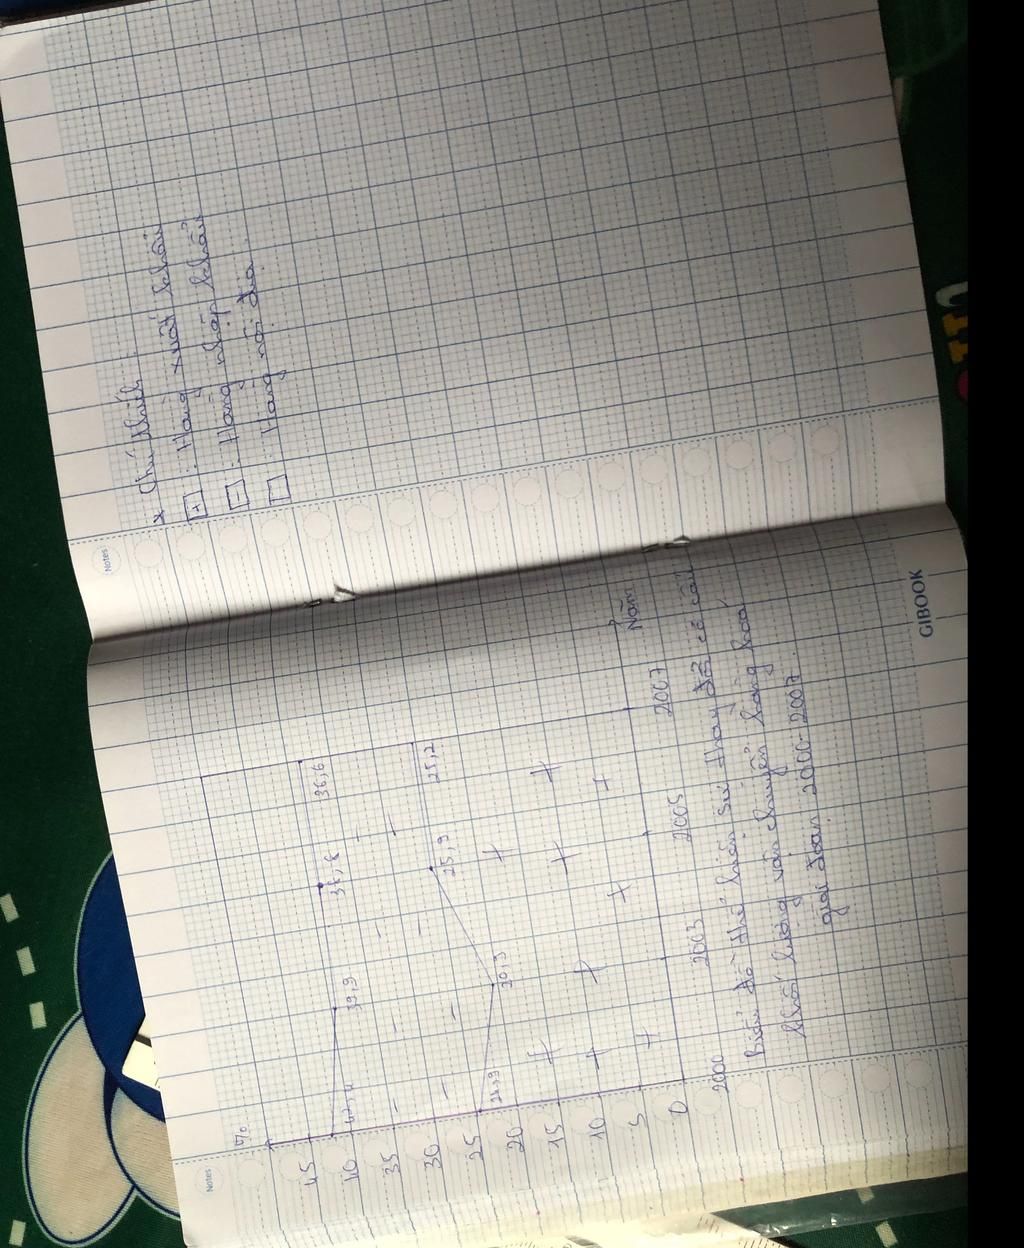 Notes
%
45
40
35
30
25
20
15
10
5
0
42,4
39,9
36,6
20,3
25,9
25,2
2000
2003
2005
2007
Năm
Biểu đồ thể hiện sự thay đổi cơ cấu
khối lượng vận chuyển hàng hoá
giai đoạn 2000-2007.
GIBOOK
Notes
* Chú thích
+ : Hàng xuất khẩu
- : Hàng nhập khẩu
: Hàng nội địa